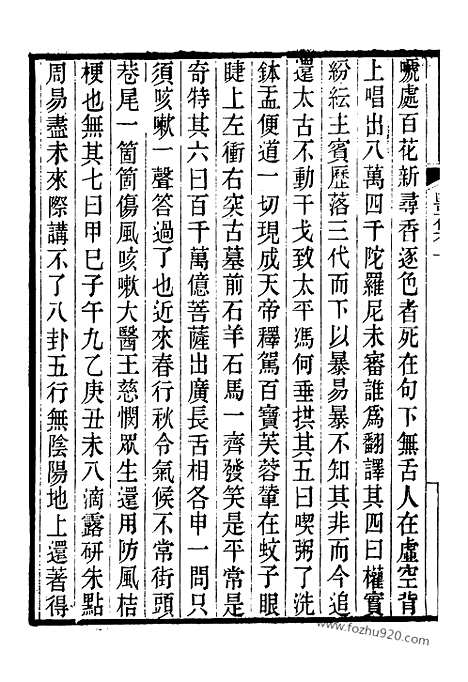 唬處百花新尋香逐色者死在句下無舌人在虛空背
上唱出八萬四千陀羅尼未審誰為翻譯其四曰權實
紛紜主賓歷落三代而下以暴易暴不知其非而今追
還太古不動干戈致太平馮何垂拱其五曰喫粥了洗
鉢盂便道一切現成天帝釋駕百寶芙蓉輦在蚊子眼
睫上左衝右突古墓前石羊石馬一齊發笑是平常是
奇特其六曰百千萬億菩薩出廣長舌相各申一問只
須咳嗽一聲答過了也近來春行秋令氣候不常街頭
巷尾一箇箇傷風咳嗽大醫王慈憫眾生還用防風桔
梗也無其七曰甲巳子午九乙庚丑未八滴露研朱點
周易盡未來際講不了八卦五行無陰陽地上還著得
www.fozhu920.com